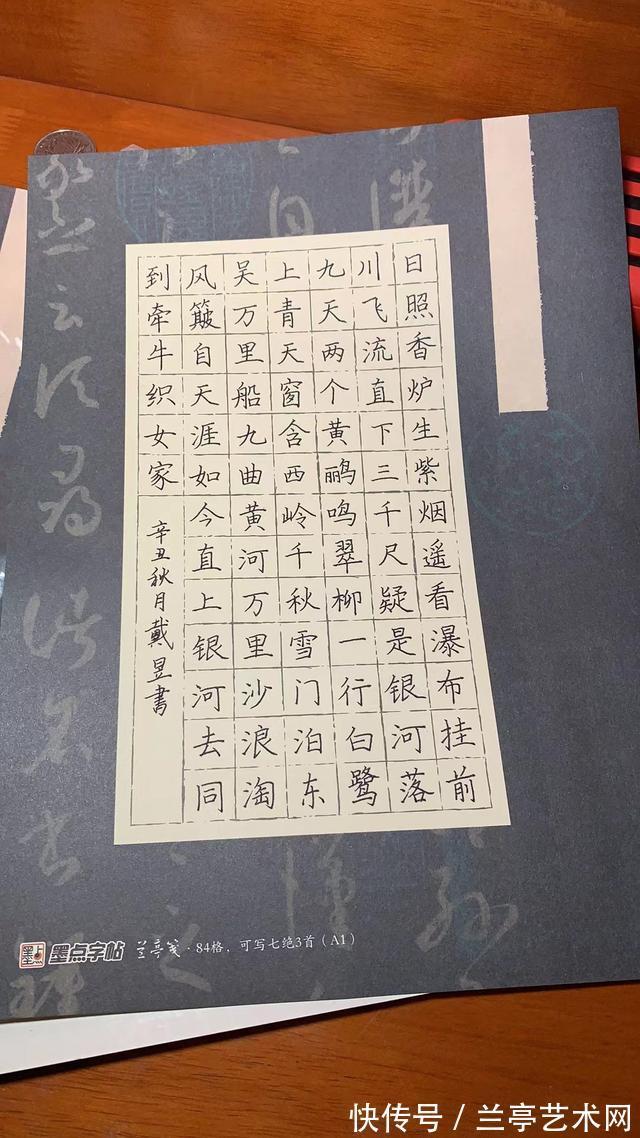 日照香炉生紫烟遥看瀑布挂前
川飞流直下三千尺疑是银河落
九天两个黄鹂鸣翠柳一行白鹭
上青天窗含西岭千秋雪门泊东
吴万里船九曲黄河万里沙浪淘
风簸自天涯如今直上银河去同
到牵牛织女家
辛丑秋月戴昱書
墨点字帖 兰亭笺·84格，可写七绝3首（A1）
快传号／兰亭艺术网